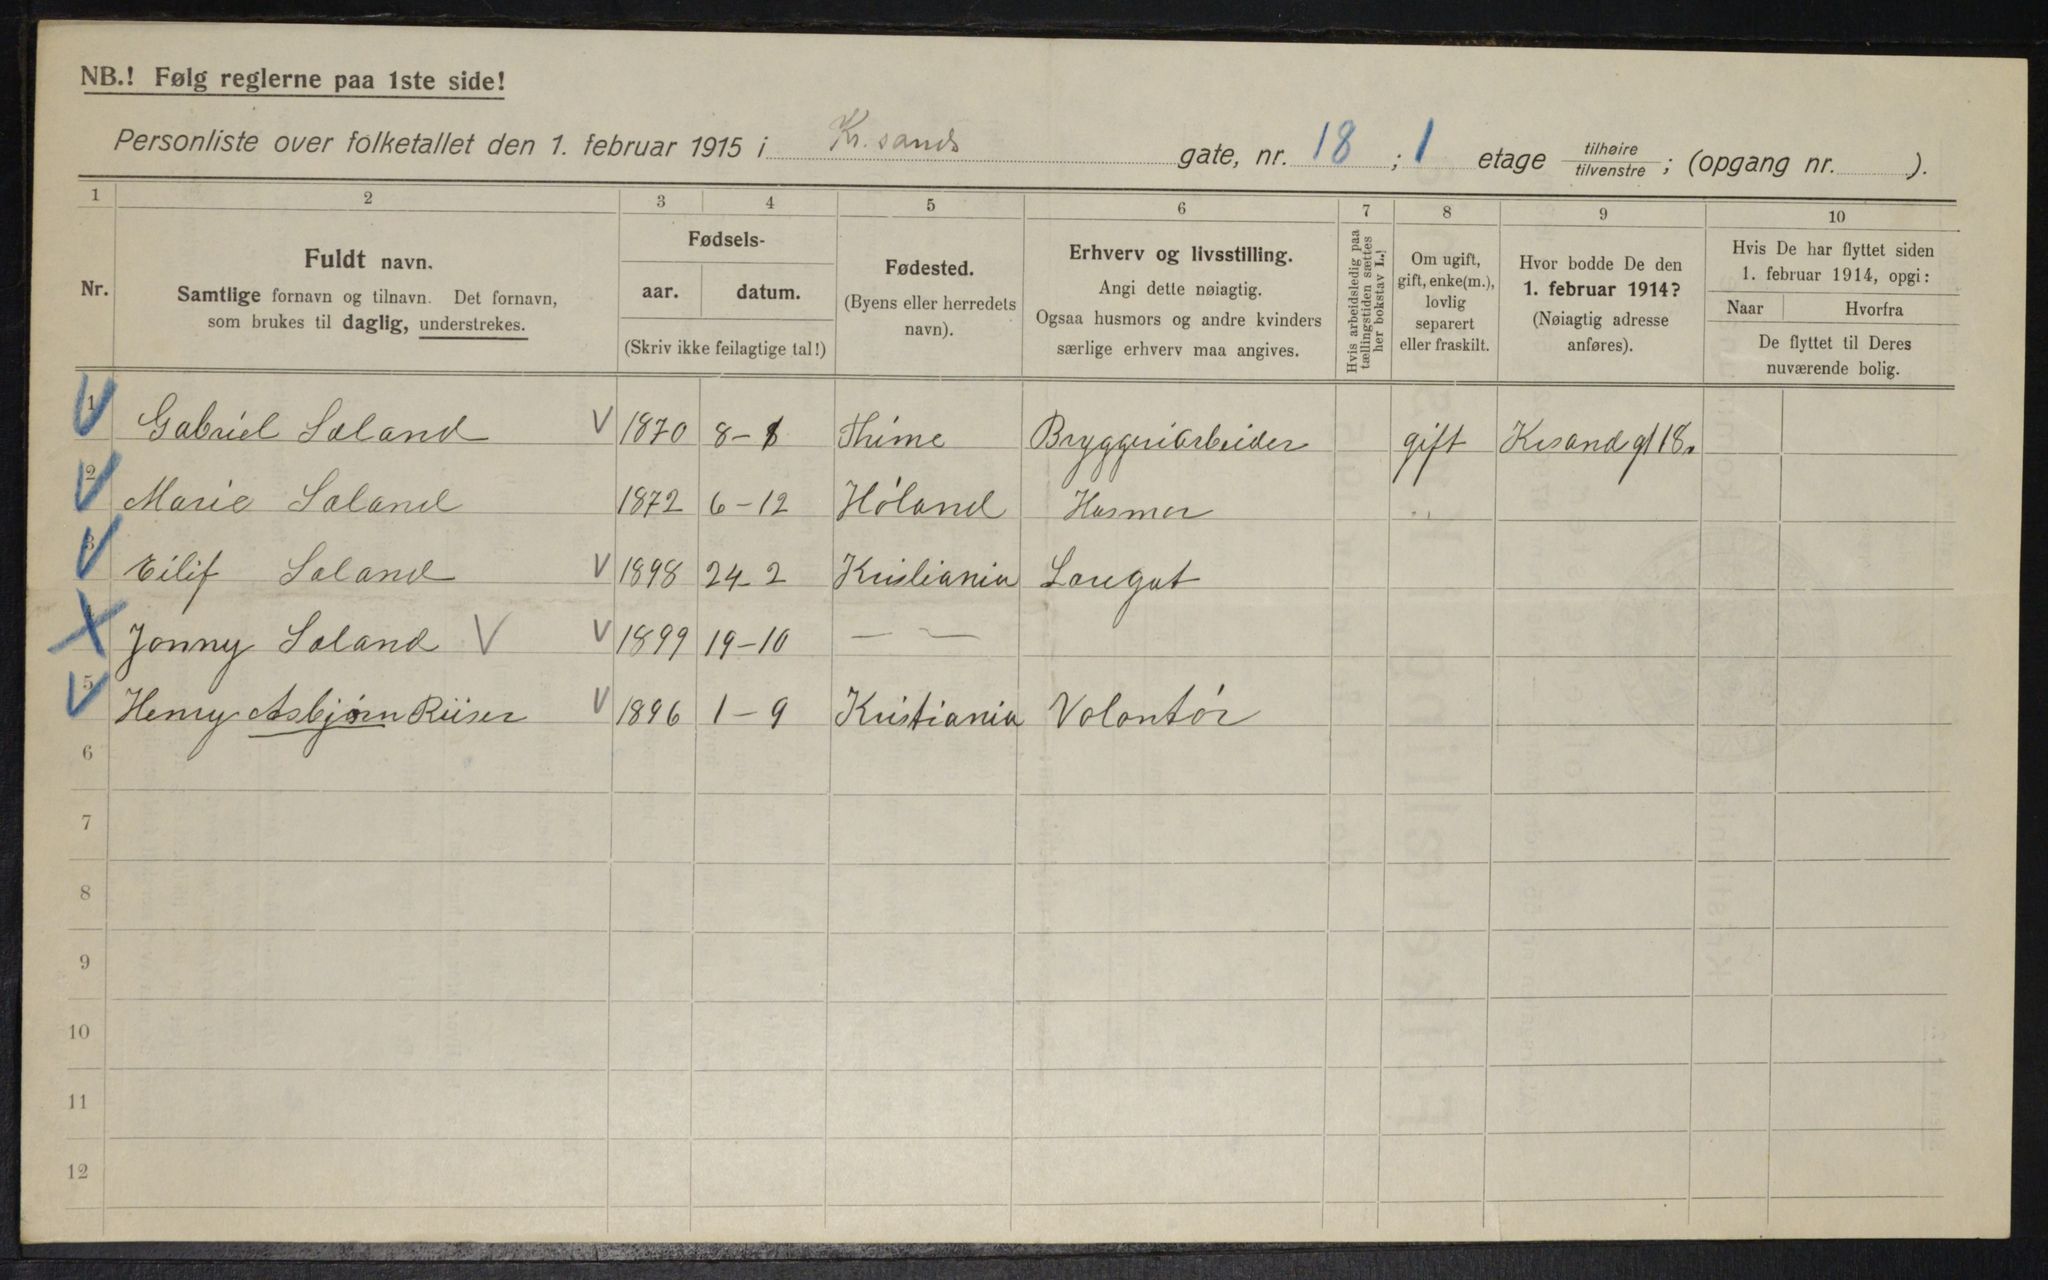 NB.! Følg reglerne paa 1ste side!
Personliste over folketallet den 1. februar 1915 i Kr.sands gate, nr. 18 ; 1 etage tilhøire / tilvenstre ; (opgang nr. ).
1 2 3 4 5 6 7 8 9 10
Nr.
Fuldt navn.
Samtlige fornavn og tilnavn. Det fornavn,
som brukes til daglig, understrekes.
Fødsels-
aar. datum.
(Skriv ikke feilagtige tal!)
Fødested.
(Byens eller herredets
navn).
Erhverv og livsstilling.
Angi dette nøiagtig.
Ogsaa husmors og andre kvinders
særlige erhverv maa angives.
Hvis arbeidsledig paa
tællingstiden sættes
her bokstav L.!
Om ugift,
gift, enke(m.),
lovlig
separert
eller fraskilt.
Hvor bodde De den
1. februar 1914?
(Nøiagtig adresse
anføres).
Hvis De har flyttet siden
1. februar 1914, opgi:
Naar Hvorfra
De flyttet til Deres
nuværende bolig.
1 Gabriel Sæland V 1870 8-8 Thime Bryggeriarbeider gift Krsand gt 18.
2 Marie Sæland 1872 6-12 Høland Husmor
3 Eilif Sæland V 1898 24-2 Kristiania
4 Jonny Sæland V V 1899 19-10 — —
5 Henry Asbjørn Riiser V 1896 1-9 Kristiania Volontør
6
7
8
9
10
11
12